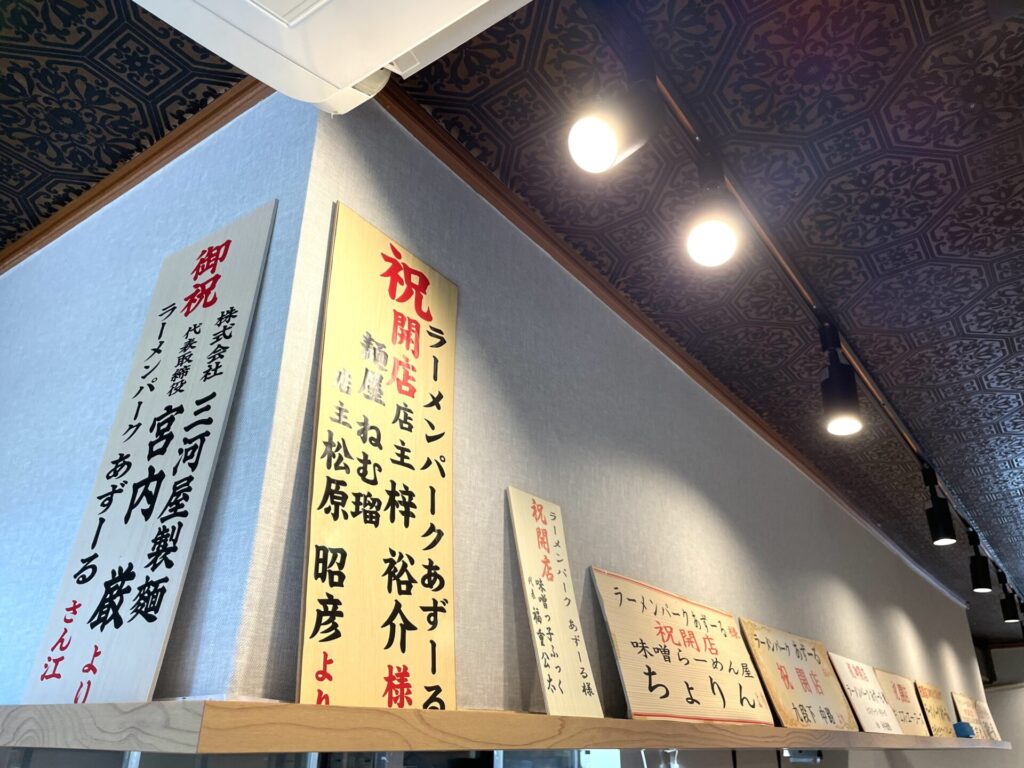 御祝
株式会社 三河屋製麺
代表取締役 宮内 厳 より
ラーメンパーク あずーる さん江
ラーメンパークあずーる
祝開店 店主 梓 裕介 様
麺屋 ねむ瑠
店主 松原 昭彦 より
ラーメンパーク あずーる様
祝開店
味噌っ子ふっく
代表 福重公太
ラーメンパークあずーる様
祝開店
味噌らーめん屋
ちょりん
ラーメンパーク あずーる
祝 開店
九段下